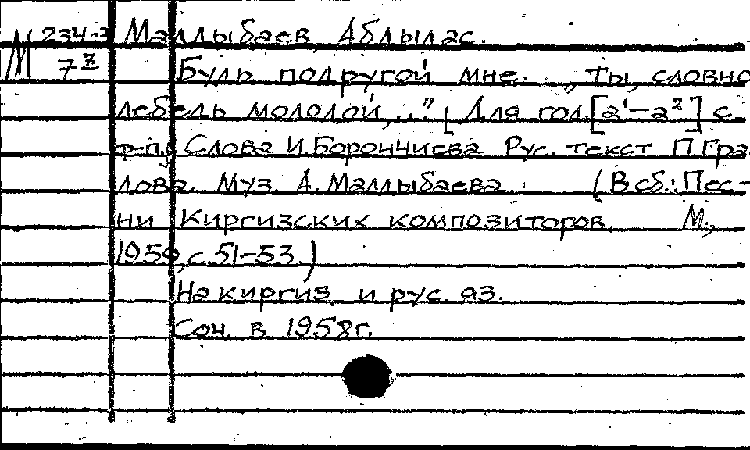 М 234-2 Маллыбаев, Абдылас.
7 3 Будь подругой мне. „Ты, словно
лебедь молодой,..." [Для гол. [a¹–a²] с
ф-п.] Слова И. Борончиева Рус. текст П. Гра-
лова. Муз. А. Маллыбаева. (В сб.: Пес-
ни Киргизских композиторов. М.,
1959, с. 51-53.)
На киргиз. и рус. яз.
Соч. в 1958г.